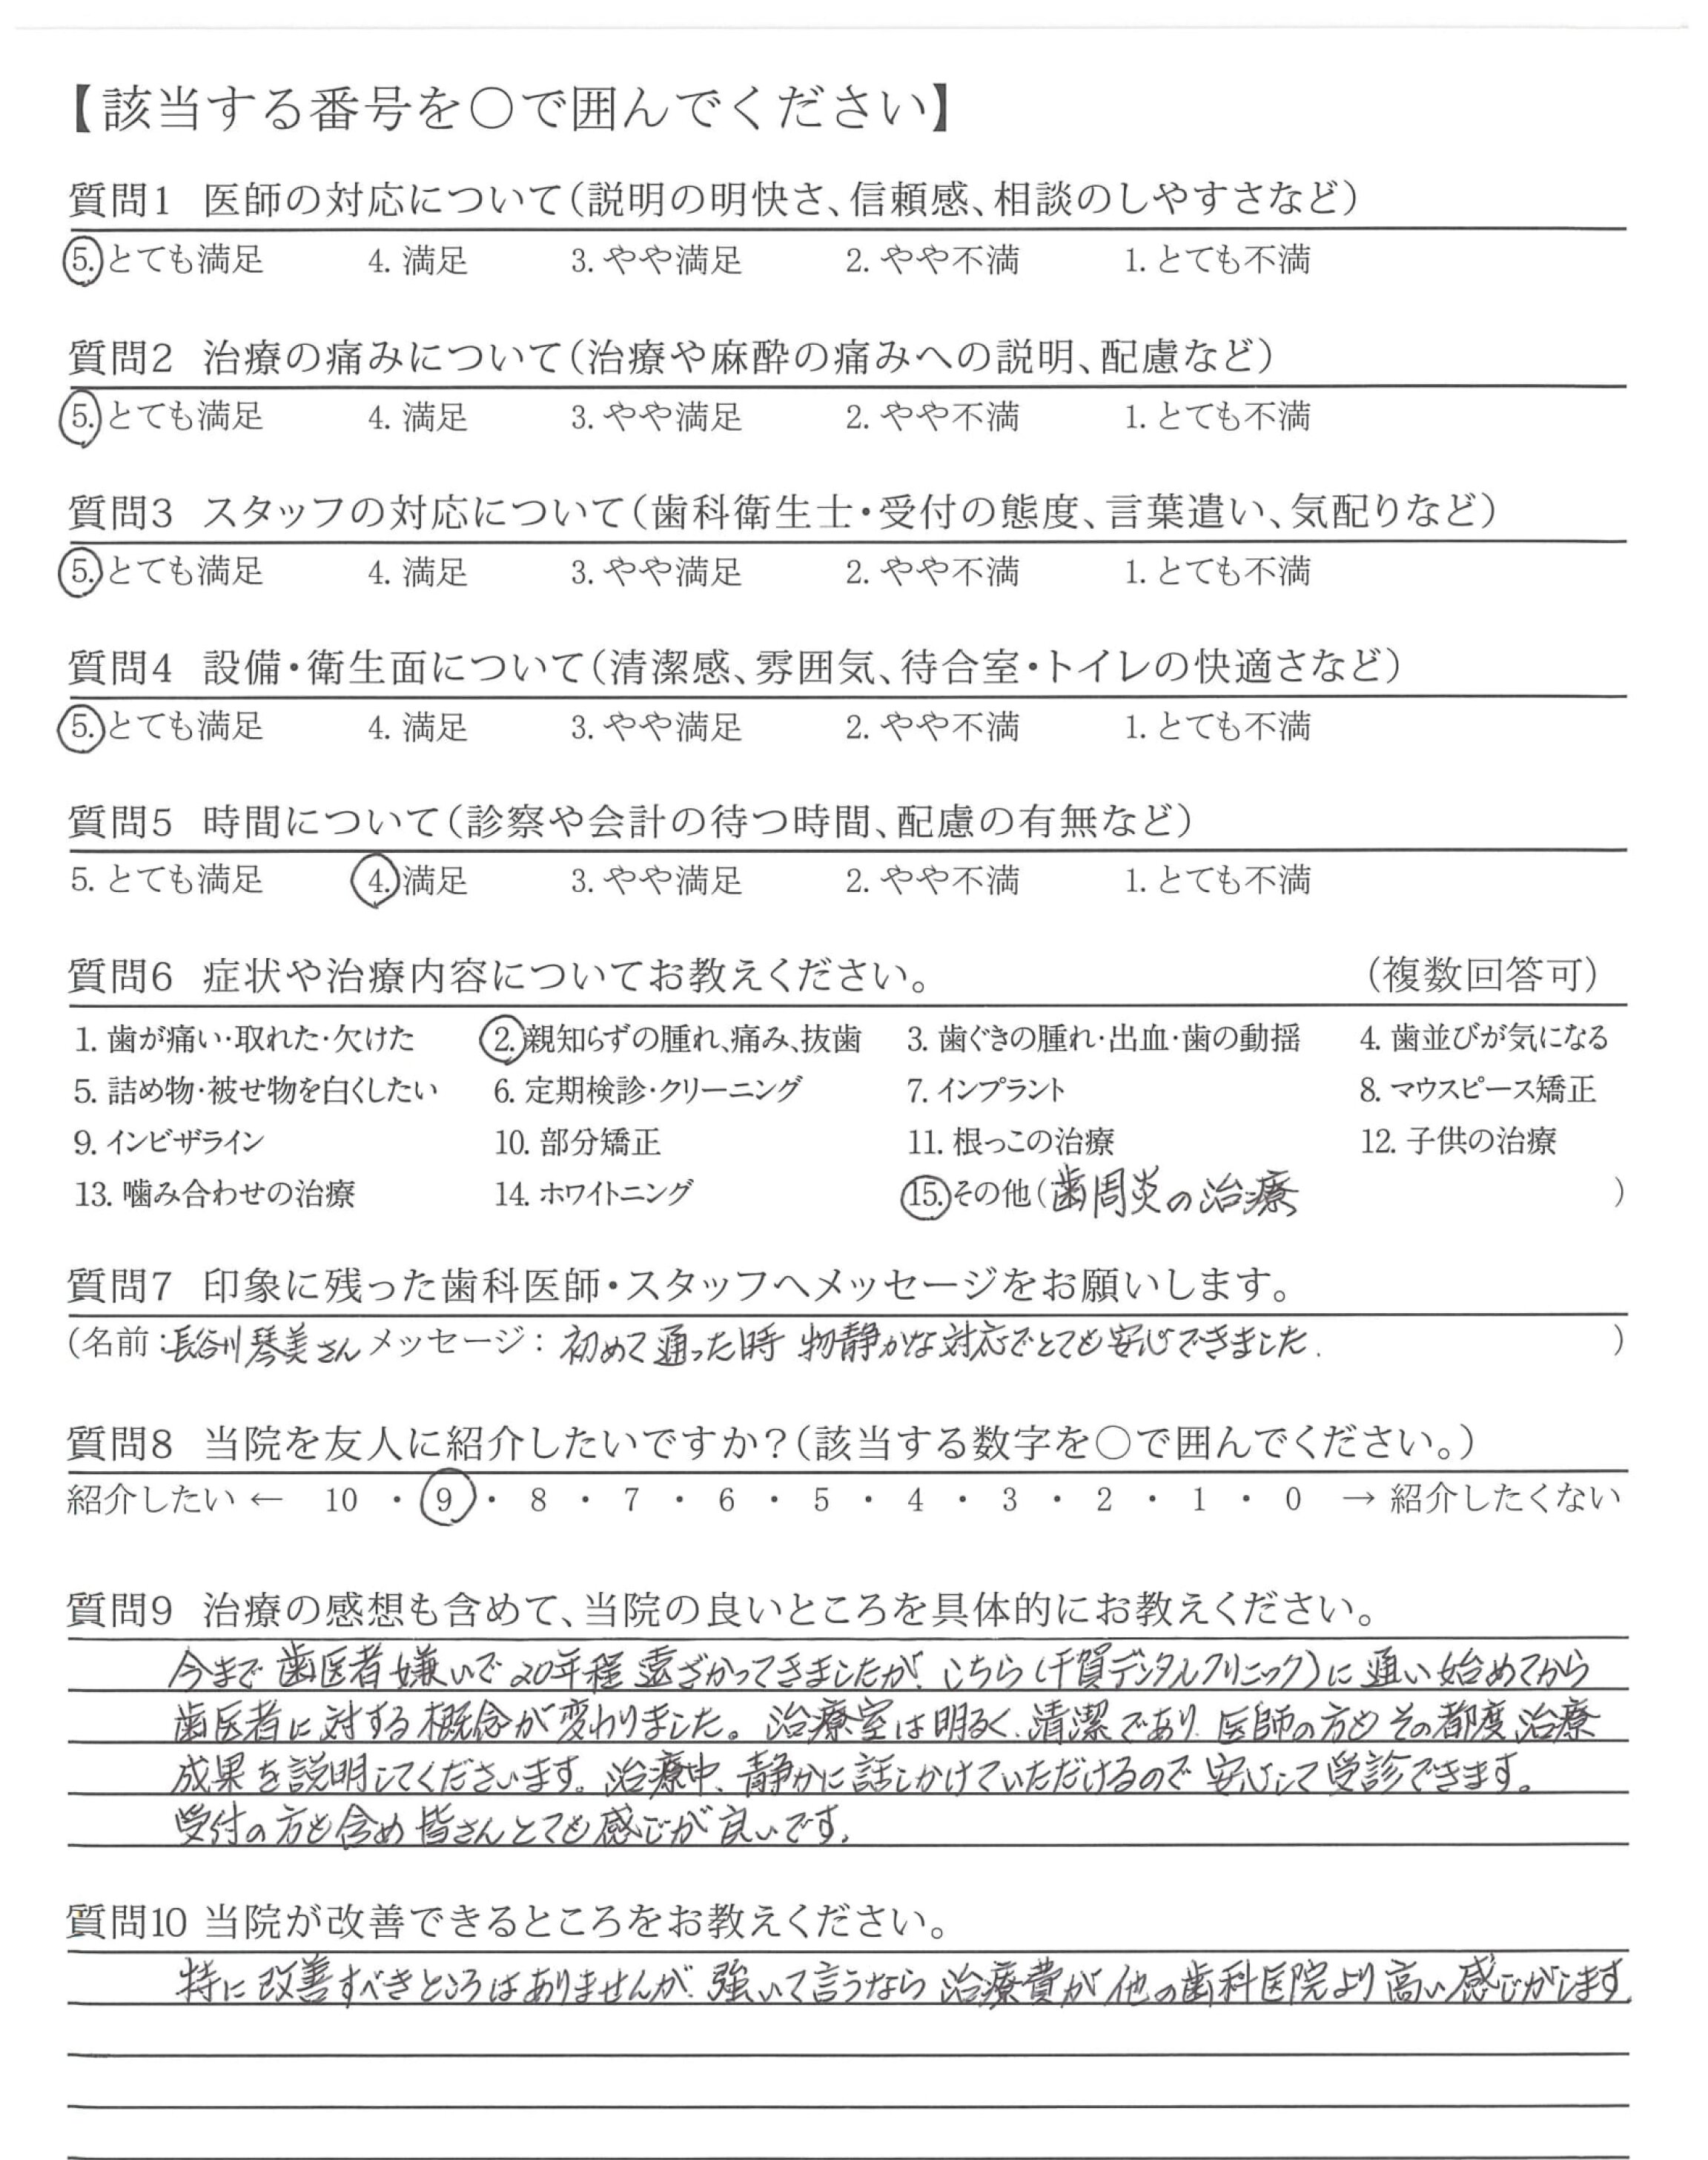 【該当する番号を○で囲んでください】
質問1 医師の対応について(説明の明快さ、信頼感、相談のしやすさなど)
5. とても満足 4. 満足 3. やや満足 2. やや不満 1. とても不満
質問2 治療の痛みについて(治療や麻酔の痛みへの説明、配慮など)
5. とても満足 4. 満足 3. やや満足 2. やや不満 1. とても不満
質問3 スタッフの対応について(歯科衛生士・受付の態度、言葉遣い、気配りなど)
5. とても満足 4. 満足 3. やや満足 2. やや不満 1. とても不満
質問4 設備・衛生面について(清潔感、雰囲気、待合室・トイレの快適さなど)
5. とても満足 4. 満足 3. やや満足 2. やや不満 1. とても不満
質問5 時間について(診察や会計の待つ時間、配慮の有無など)
5. とても満足 4. 満足 3. やや満足 2. やや不満 1. とても不満
質問6 症状や治療内容についてお教えください。 (複数回答可)
1. 歯が痛い・取れた・欠けた 2. 親知らずの腫れ、痛み、抜歯 3. 歯ぐきの腫れ・出血・歯の動揺 4. 歯並びが気になる
5. 詰め物・被せ物を白くしたい 6. 定期検診・クリーニング 7. インプラント 8. マウスピース矯正
9. インビザライン 10. 部分矯正 11. 根っこの治療 12. 子供の治療
13. 噛み合わせの治療 14. ホワイトニング 15. その他(歯周炎の治療 )
質問7 印象に残った歯科医師・スタッフへメッセージをお願いします。
(名前:長谷川琴美さん メッセージ: 初めて通った時 物静かな対応でとても安心できました. )
質問8 当院を友人に紹介したいですか?(該当する数字を○で囲んでください。)
紹介したい ← 10 ・ 9 ・ 8 ・ 7 ・ 6 ・ 5 ・ 4 ・ 3 ・ 2 ・ 1 ・ 0 → 紹介したくない
質問9 治療の感想も含めて、当院の良いところを具体的にお教えください。
今まで歯医者嫌いで20年程遠ざかってきましたが、こちら(千賀デンタルクリニック)に通い始めてから
歯医者に対する概念が変わりました。治療室は明るく、清潔であり、医師の方もその都度治療
成果を説明してくださいます。治療中、静かに話しかけていただけるので安心して受診できます。
受付の方も含め皆さんとても感じが良いです。
質問10 当院が改善できるところをお教えください。
特に改善すべきところはありませんが、強いて言うなら治療費が他の歯科医院より高い感じがします.